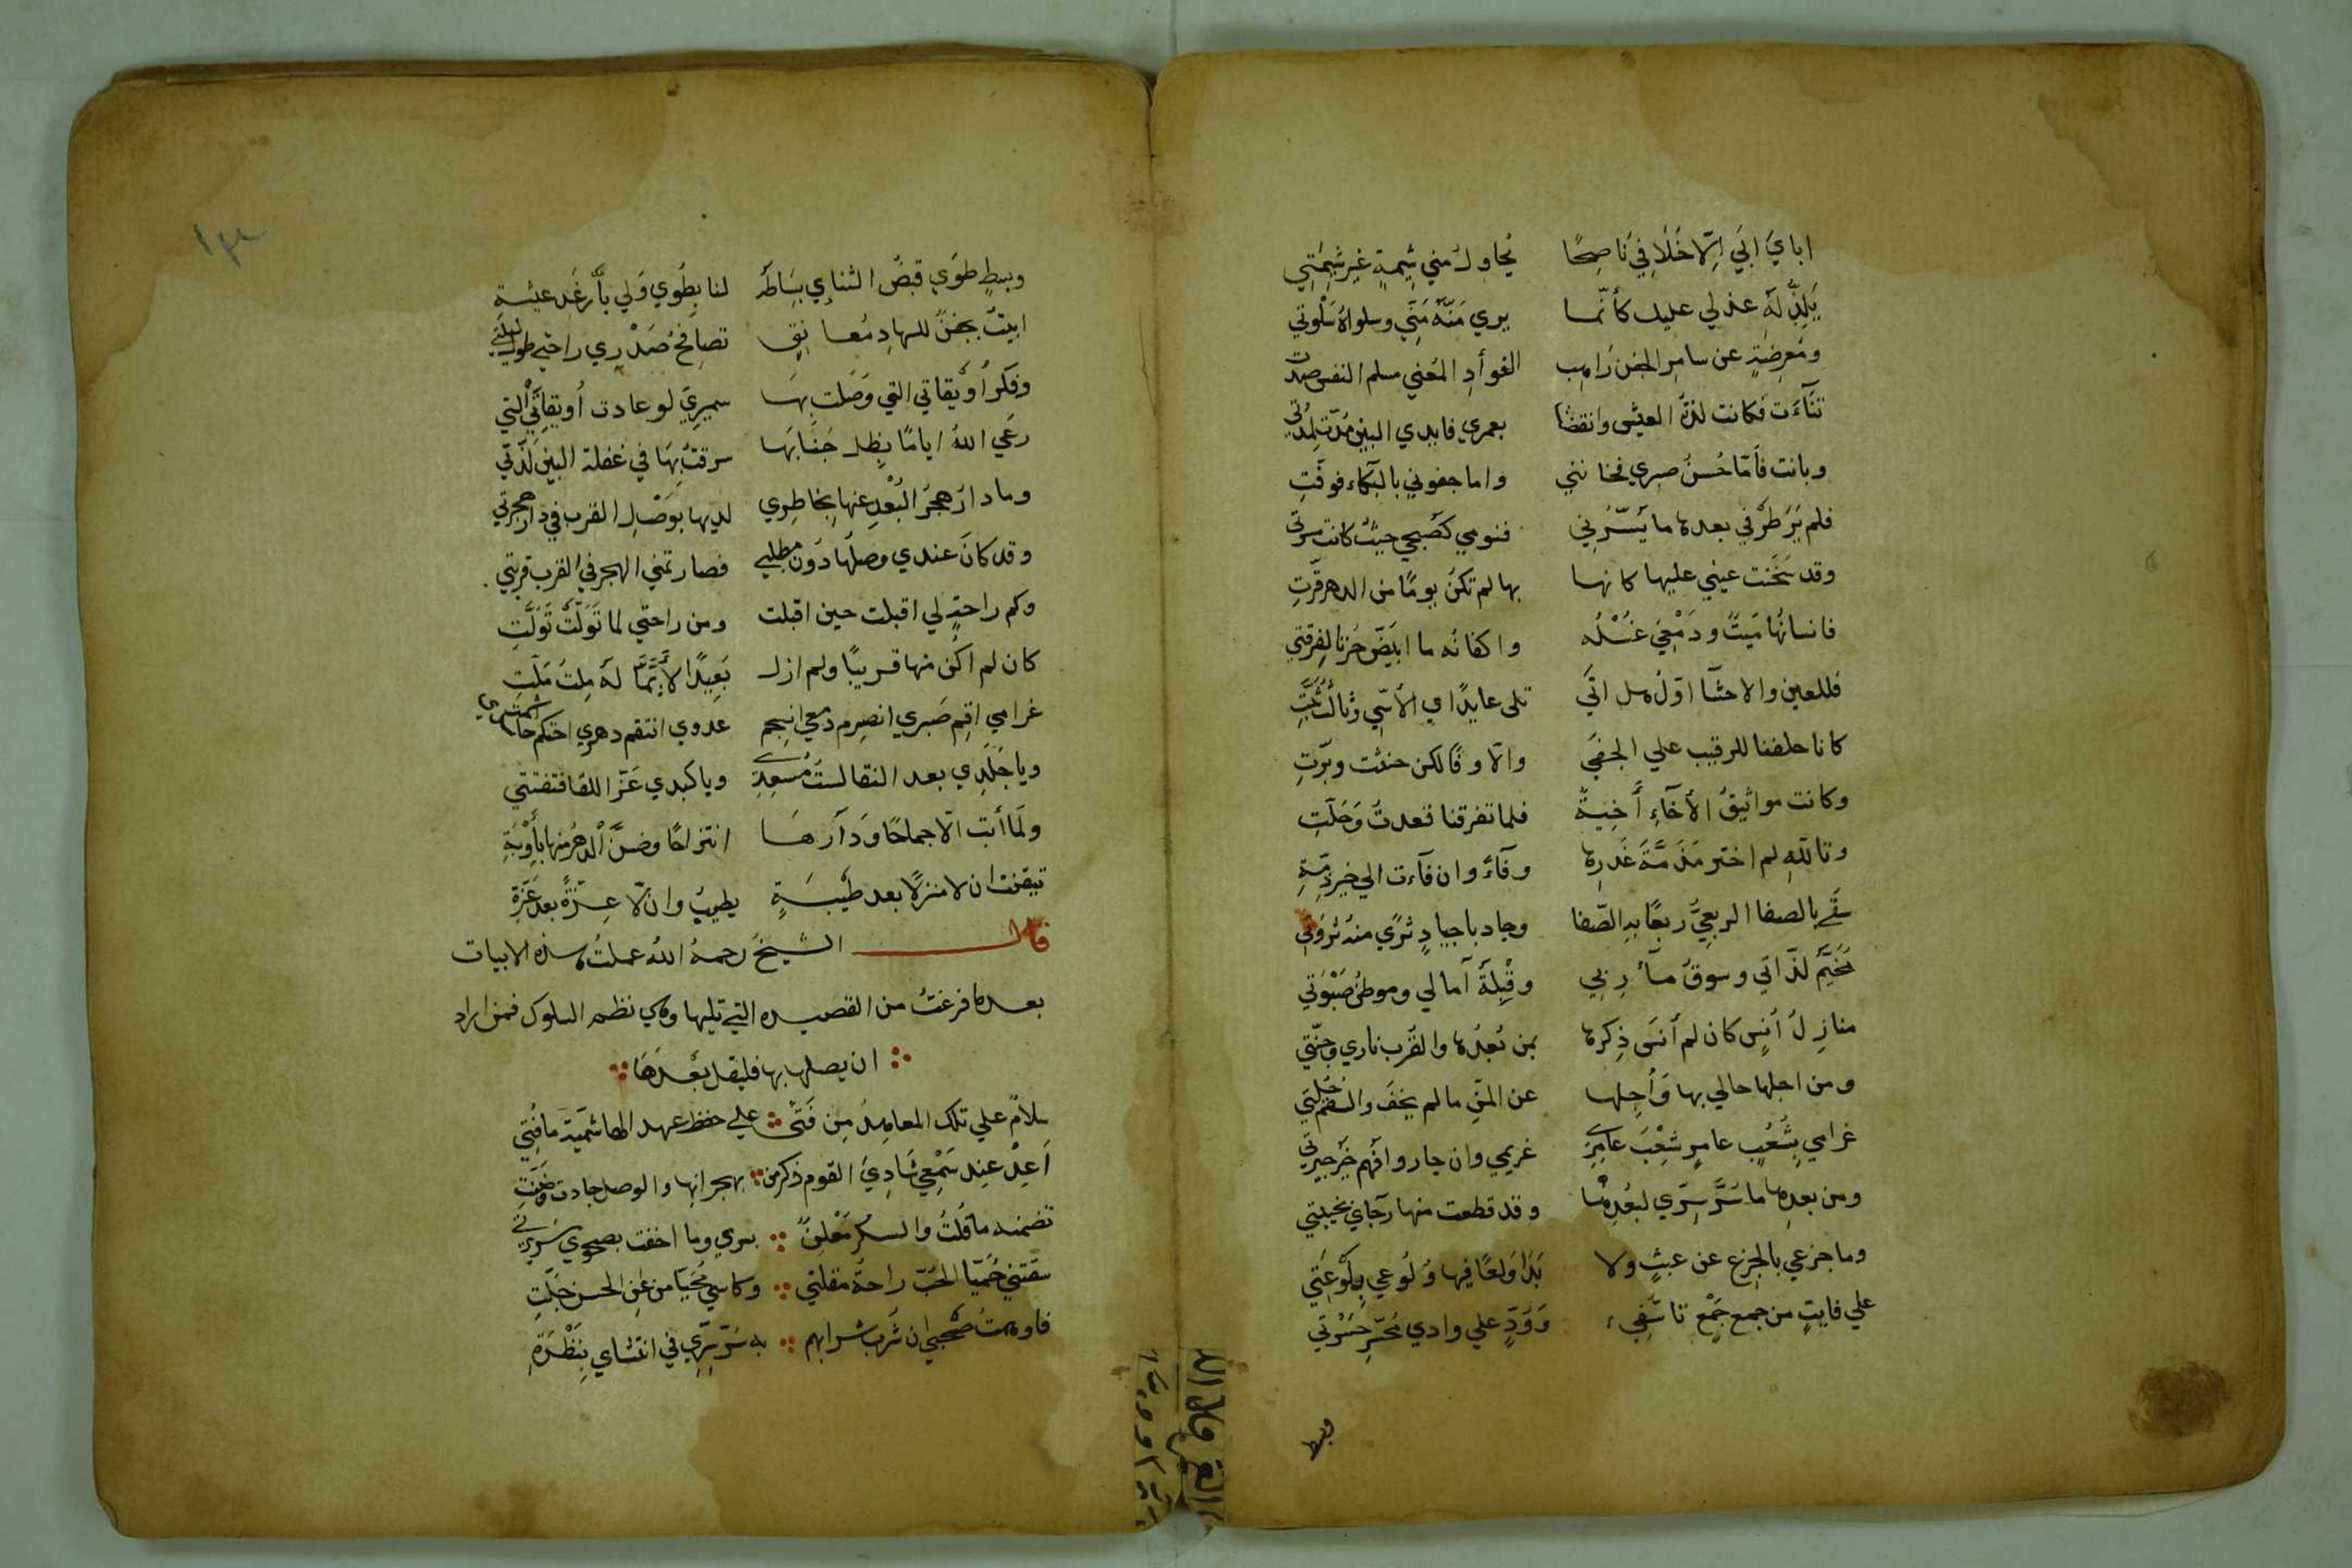 ابايَ ابَي اِلّا خَلَا فِيَ نَاصِحًا يُحاولُ مني شِيمةٍ غيرِ شِيمَتِي
يَلِذُّ لَهُ عذلي عليك كأنّما يري مَنَّهُ مَنِّي وسلواهُ سَلْوَتي
ومُعرِضةٍ عن سامِرِ الجفن رَاهِبِ الفوأدِ المُعَني مسلمِ النفس صدت
تنآءَت فكانت لذةَ العيش وانقضا بعمري فايدي البين مُدّت لِمُدّتي
وبانت فأمّا حُسنُ صبري فخانني واما جفوني بالبكآء فوفّتِ
فلم يَرَ طرفي بعدها ما يَسُرُني فنومي كصُبحي حيثُ كانت مسرتي
وقد سَخُنت عيني عليها كانها بها لم تكنُ يومًا من الدهر قرّتِ
فانسانُها مَيتٌ ودَمْعِيَ غُسْلُه واكفانُه ما ابيَضَّ حُزنا لِفِرقتي
فللعين والاحشآ اوّلُ هل اتَي تلي عايدُا ي الأسَي وثالثُ تَبَّتِ
كانا حلفنا للرقيبِ علي الجفَي والّا وفًا لكن حنثت وبرّتِ
وكانت مواثيقُ الأخآءِ أَخِيةً فلما تفرقنا قعدتُ وَحَلّتِ
وتاللّهِ لم اختر مَذَمَّةَ غَدرِها وفآءً وان فآءت الي خيرِ ذِمّةِ
سقَي بالصفا الربعيُّ ربعًا به الصّفا وجاد باجيادٍ ثرًي منهُ ثروتي
مُخَيَّمُ لذّاتي وسوقُ مآرِبي وقِبْلةُ آمالي وموطنُ صَبْوَتي
منازِلُ أُنسٍ كان لم أنسَ ذِكرها بمن بُعدُها والقُرب ناري وجَنّتي
ومن اجلها حالي بها وَأُجِلها عن المنّ ما لم يخفَ والسقم حُلّتي
غرامي بِشَعْبِ عامرٍ شِعْبَ عامِرٍ غريمي وان جاروا فهم خير جيرتي
ومن بعدِها ما سُرَّ سِرّي لبعُدِها وقد قطعت منها رجآي بخيبتي
وما جزعي بالجزع عن عبثٍ ولا بَدَا وَلعًا فيها وُلُوعي بِلَوْعَتي
علي فايتٍ من جمع جَمْعٍ تاسّفِي وَوَدٍّ علي وادي مُحَسِّرِ حَسْرتي
وبسط
وبسطٍ طوَي قبضُ التناءي بِسَاطَهُ لنا بِطُوي وَلي بأرغَدِ عيشةِ
ابيتُ بجفنٍ للسهادِ مُعانِقٍ تصافحُ صَدْرِي راحتي طول ليلتي
وذكرُ أويقاتي التي وَصَلت بِهَا سميري لو عادت أويقاتيَ التي
رعَي اللهُ ايامًا بِظِلِّ جَنابَها سرقتُ بِهَا في غفلة البين لذّتي
وما دار هجرُ البُعْدِ عنها بخاطِري لديها بوَصْلِ القرب في دارِ هجرتي
وقد كانَ عندي وصلُها دُونَ مطلبي فصار تمني الهجرِ في القرب قربتي
وكم راحةٍ لي اقبلت حين اقبلت ومن راحتي لما تَوَلّتْ تَوَلَّتِ
كان لم اكن منها قريبًا ولم ازل بَعِيدًا لأيِّمَا لَهُ مِلتُ مَلّتِ
غرامي اقِم صَبري انصرِم دمعي انسِجم عدوي انتقم دهري احتكم حاسدي اشمتِ
ويا جَلَدي بعد النقا لستَ مُسعِدِي ويا كبدي عَزَّ اللقا فتفتتي
ولَما أبت الّا جماحًا ودَارَهَا انتزاحًا وضَنَّ الدهرُ منها بأَوْبَةِ
تيقنت ان لا منزلًا بعد طَيْبَةٍ يطيبُ وان لّا عِزّةً بعد عَزّةِ
قال الشيخُ رحمهُ اللهُ عملتُ هذه الابيات
بعدها فرغتُ من القصيده التي تليها وهي نظم السلوك فمن اراد
ان يصلها بها فليقل بَعْدَهَا
سلامٌ علي تلك المعاهِدِ مِن فَتًى علي حفظ عهد الهاشميّة ما فُتِي
اَعِدْ عِند سَمْعي شَادِيَ القوم ذكر من بهجرانِها والوصل جادت وضَنّتِ
تضمنه ما قُلتُ والسكرُ مَعْلِنٌ بسري وما اخفت بصحوي سَرِيرتي
سقتني حُمَيّا الحُبّ راحةُ مقلتي وكاسي مُحَيّا من عَنِ الحسن جَلّتِ
فاوهمتُ صَحْبي ان شُربَ شرابهم به سُرَّ سِرّي في انتشاي بِنَظْرَةِ